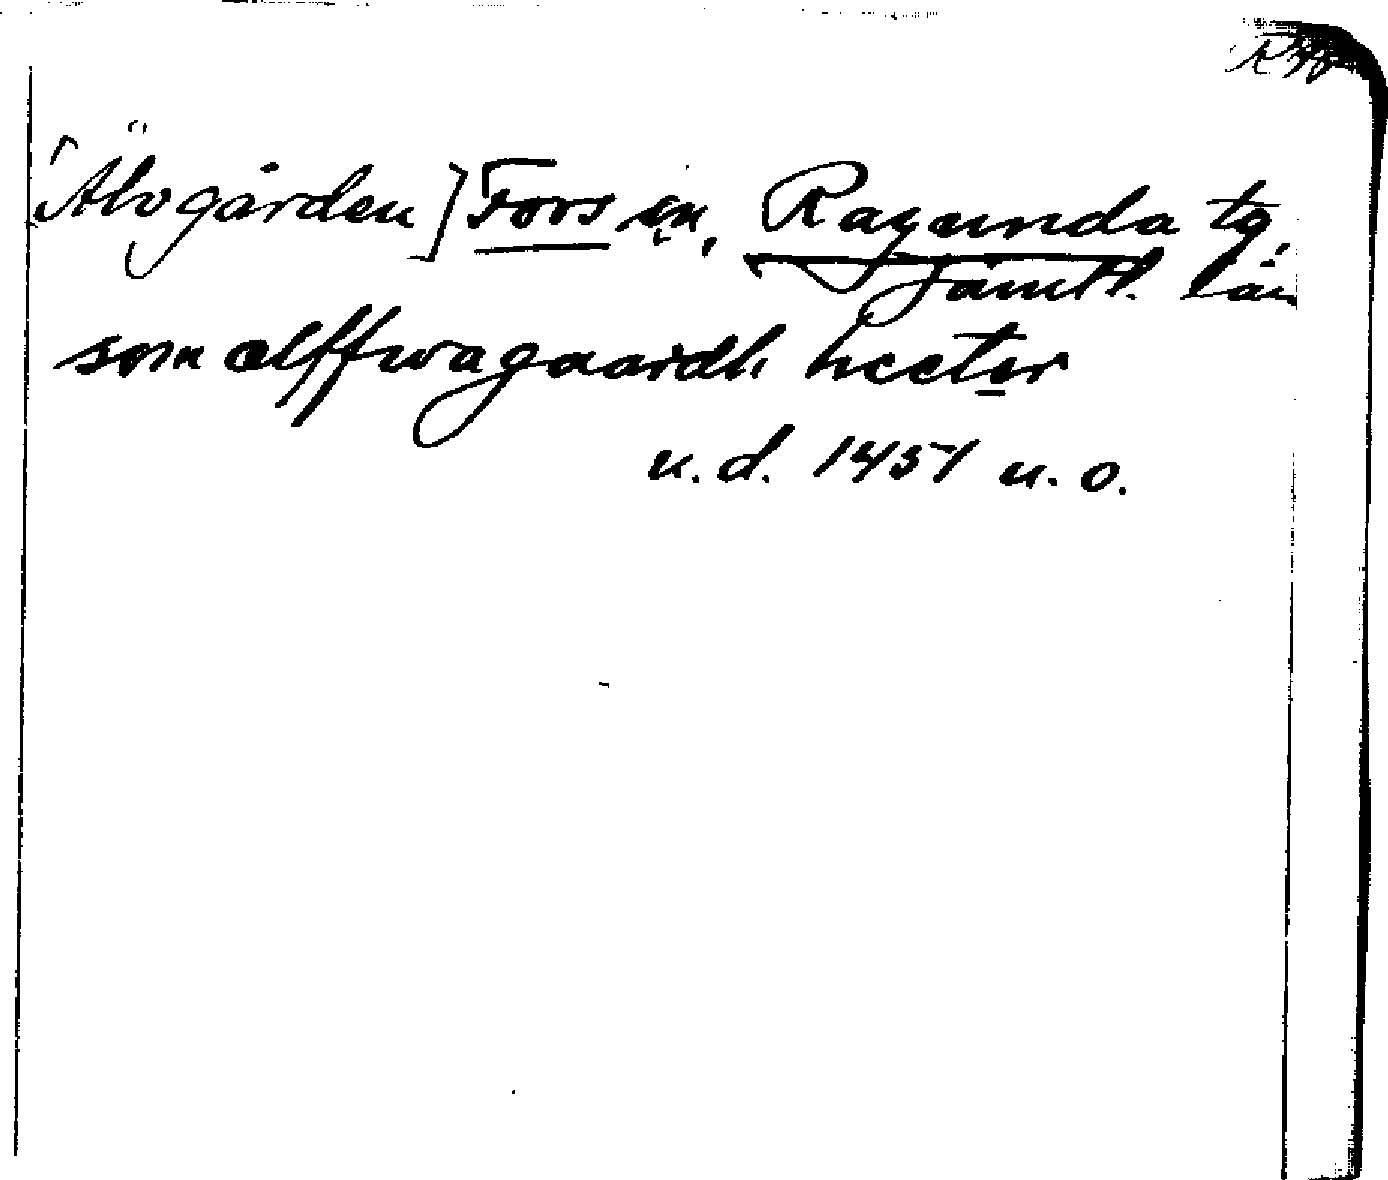 [Älvgården] Fors sn, Ragunda tg,
Jämtl. län
som ælffwagaardh heeter
u. d. 1451 u. o.